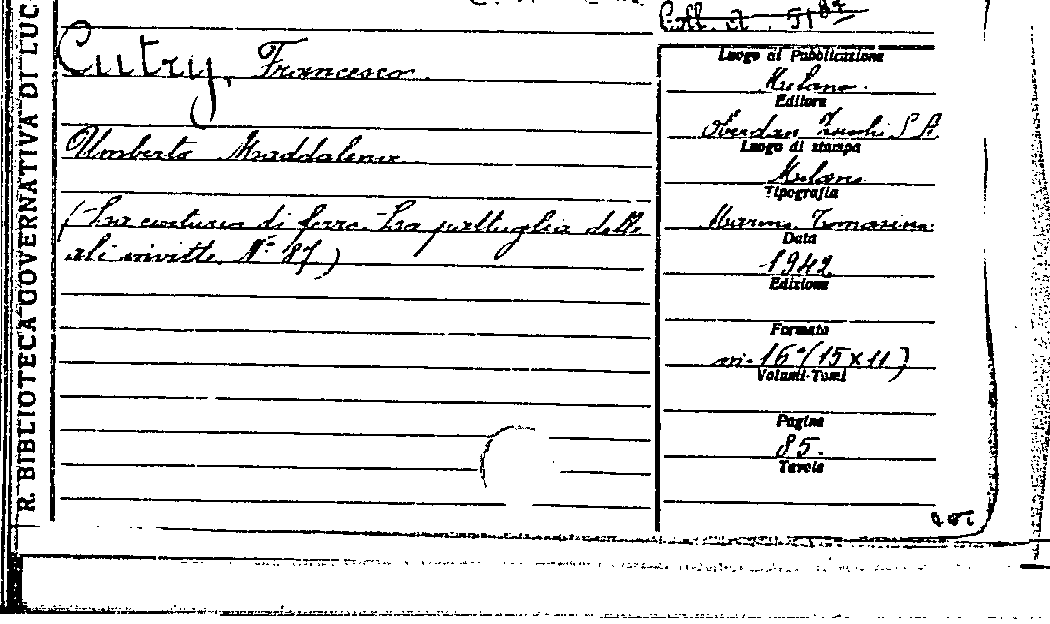 R. BIBLIOTECA GOVERNATIVA DI LUC
Coll. A. 51
Cutry, Francesco.
Umberto Maddalena
(La centuria di ferro. La pattuglia delle
ali invitte. N° 87)
Luogo di Pubblicazione
Milano.
Editore
Oberdan Zucchi S A
Luogo di stampa
Milano
Tipografia
Data
1942
Edizione
Formato
in-16°(15x11)
Volumi-Tomi
Pagine
85.
Tavole